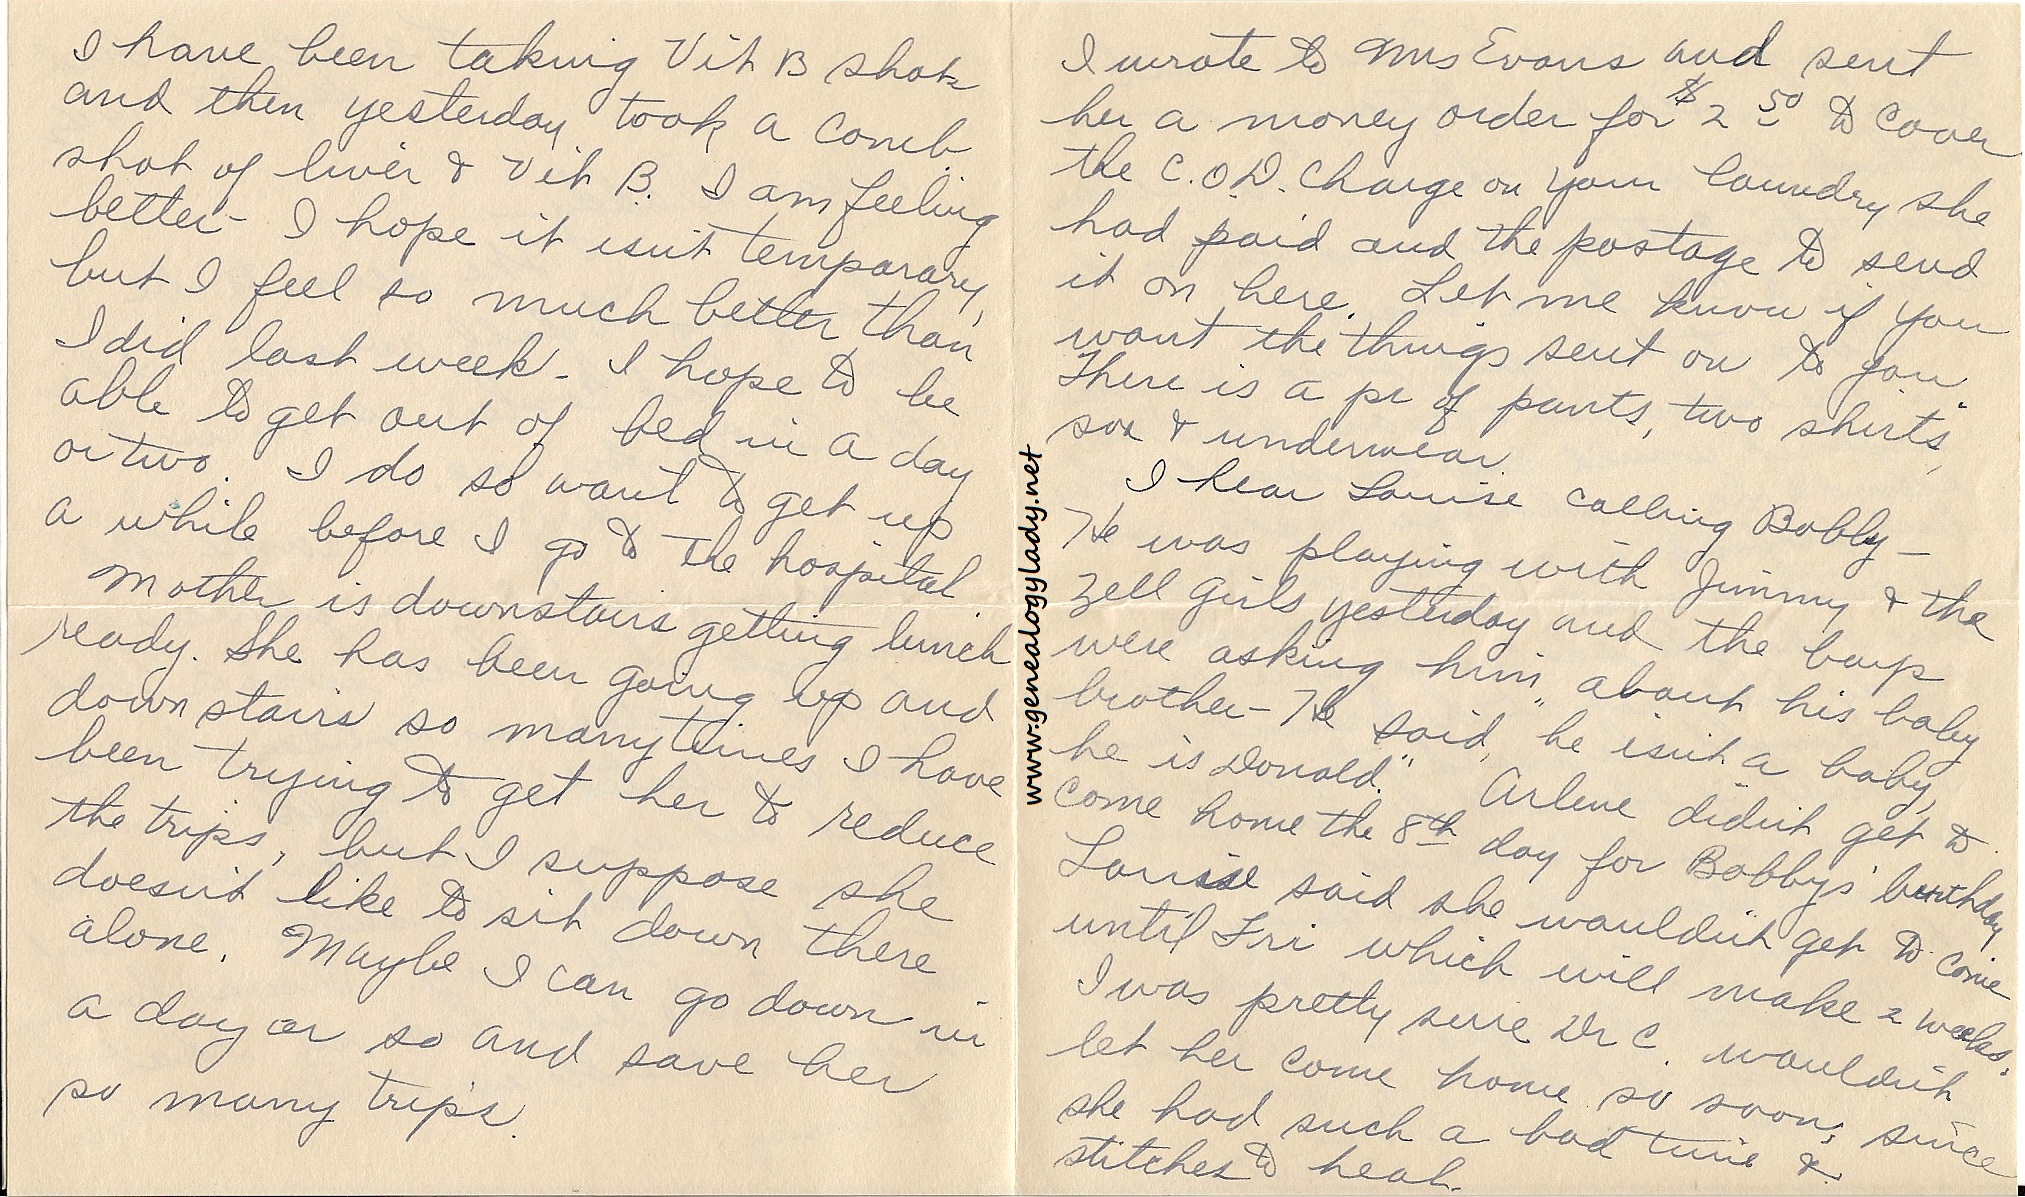 I have been taking Vit B shots
and then yesterday took a comb.
shot of liver & Vit B. I am feeling
better - I hope it isn't temparary,
but I feel so much better than
I did last week - I hope to be
able to get out of bed in a day
or two. I do so want to get up
a while before I go to the hospital.
Mother is downstairs getting lunch
ready. She has been going up and
down stairs so many times I have
been trying to get her to reduce
the trips, but I suppose she
doesn't like to sit down there
alone. Maybe I can go down in
a day or so and save her
so many trips.
I wrote to Mrs Evans and sent
her a money order for $2 50 to cover
the C.O.D. charge on your laundry she
had paid and the postage to send
it on here. Let me know if you
want the things sent on to you.
There is a pr of pants, two shirts,
sox & underwear.
I hear Louise calling Bobby -
He was playing with Jimmy & the
Zell girls yesterday and the boys
were asking him about his baby
brother - He said, "he isn't a baby,
he is Donald." Arlene didn't get to
come home the 8th day for Bobbys' birthday
Louise said she wouldn't get to come
until Fri which will make 2 weeks.
I was pretty sure Dr C. wouldn't
let her come home so soon, since
she had such a bad time &
stitches to heal.
www.genealogylady.net